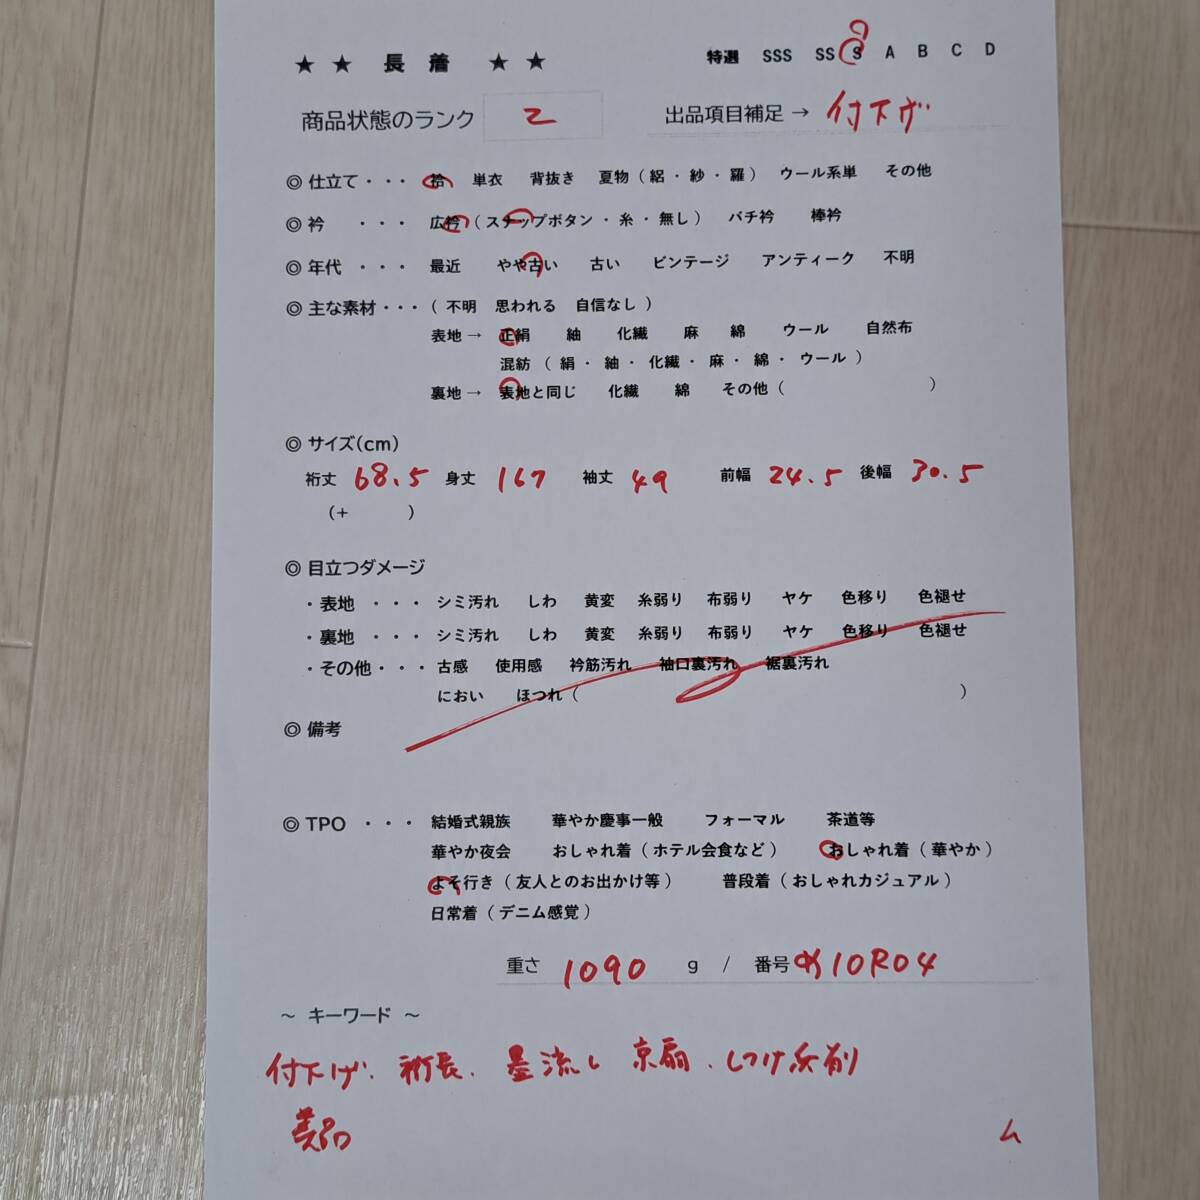 ★ ★ 長 着 ★ ★ 特選 SSS SS S A B C D
商品状態のランク 2 出品項目補足 → 付下げ
◎ 仕立て・・・ 袷 単衣 背抜き 夏物（ 絽 ・ 紗 ・ 羅 ） ウール系単 その他
◎ 衿 ・・・ 広衿（ スナップボタン ・ 糸 ・ 無し ） バチ衿 棒衿
◎ 年代 ・・・ 最近 やや古い 古い ビンテージ アンティーク 不明
◎ 主な素材・・・（ 不明 思われる 自信なし ）
表地 → 正絹 紬 化繊 麻 綿 ウール 自然布
混紡（ 絹 ・ 紬 ・ 化繊 ・ 麻 ・ 綿 ・ ウール ）
裏地 → 表地と同じ 化繊 綿 その他（ ）
◎ サイズ(cm)
裄丈 68.5 身丈 167 袖丈 49 前幅 24.5 後幅 30.5
（+ ）
◎ 目立つダメージ
・表地 ・・・ シミ汚れ しわ 黄変 糸弱り 布弱り ヤケ 色移り 色褪せ
・裏地 ・・・ シミ汚れ しわ 黄変 糸弱り 布弱り ヤケ 色移り 色褪せ
・その他・・・ 古感 使用感 衿筋汚れ 袖口裏汚れ 裾裏汚れ
におい ほつれ（ ）
◎ 備考
◎ TPO ・・・ 結婚式親族 華やか慶事一般 フォーマル 茶道等
華やか夜会 おしゃれ着（ ホテル会食など ） おしゃれ着（ 華やか ）
よそ行き（ 友人とのお出かけ等 ） 普段着（ おしゃれカジュアル ）
日常着（ デニム感覚 ）
重さ 1090 g / 番号 め10R04
～ キーワード ～
付下げ、裄長、墨流し 京扇、しつけ糸有り
美品 ム